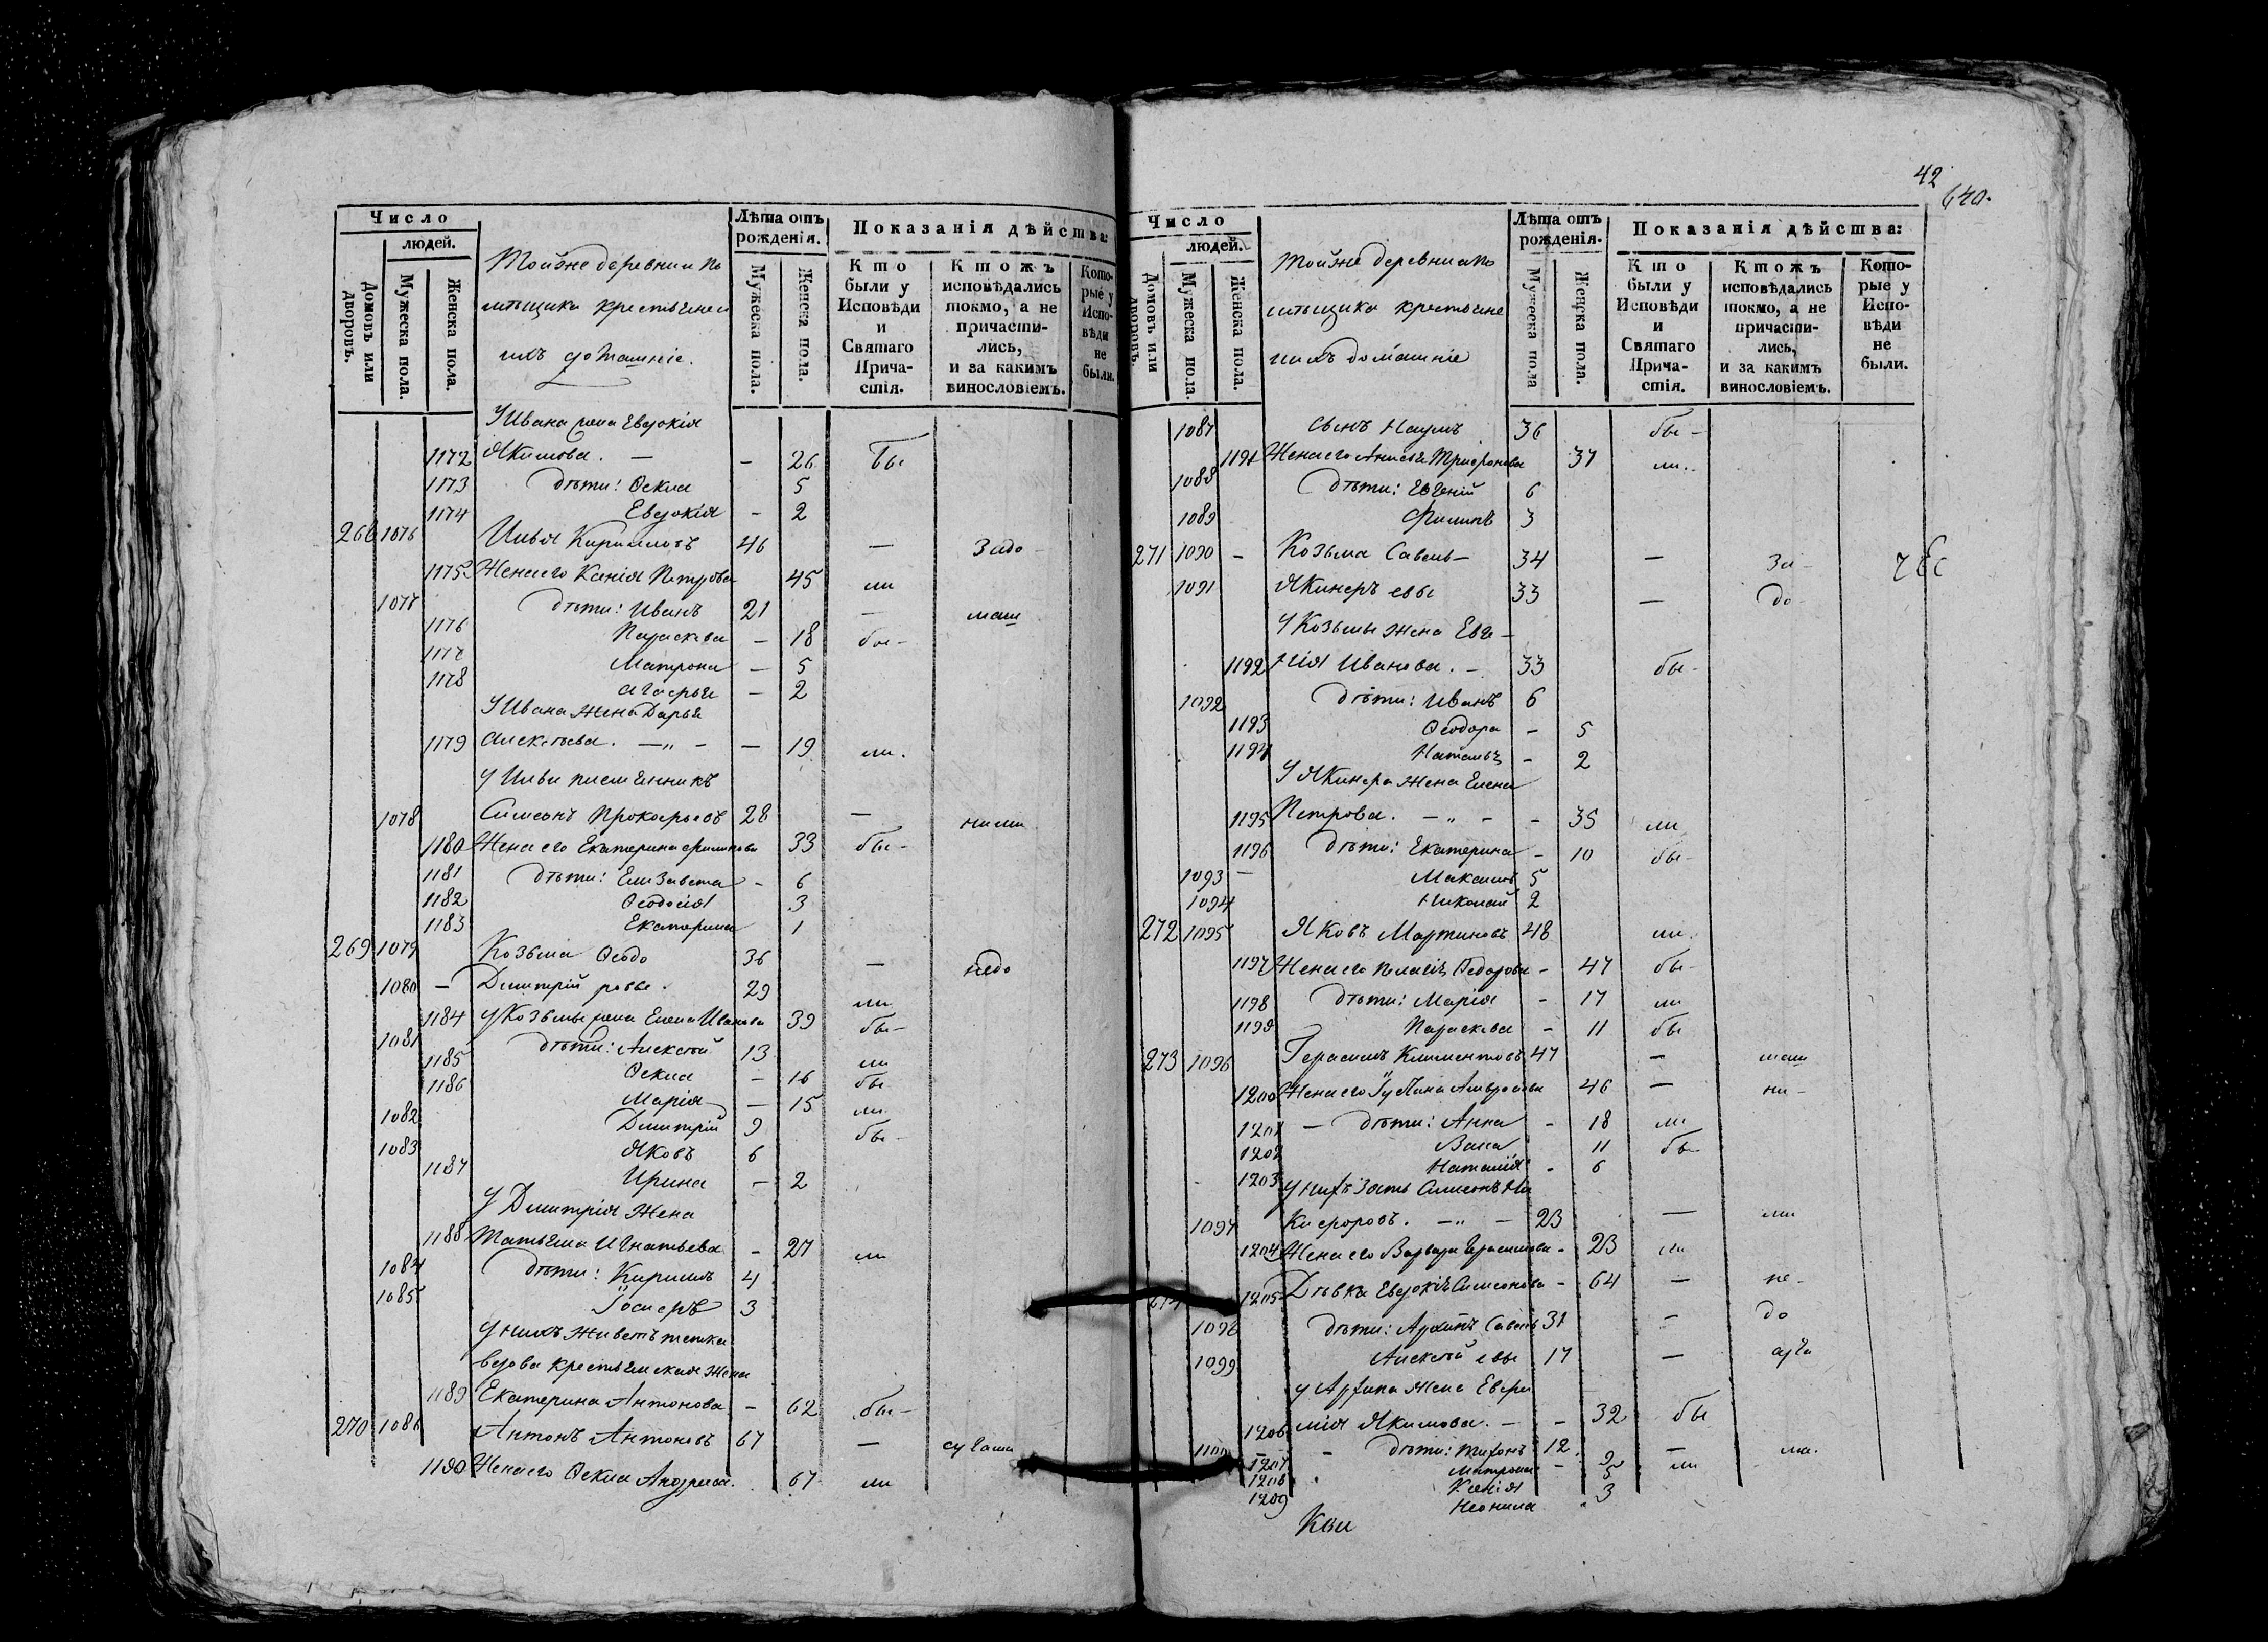 Число
людей.
Домовъ или дворовъ.
Мужеска пола.
Женска пола.
Тойже деревни и по
мѣщика крестьяне и
ихъ домашніе.
Лѣта отъ рожденія.
Мужеска пола.
Женска пола.
Показанія дѣйства:
Кто были у Исповѣди и Святаго Прича-стія.
Ктожъ исповѣдались токмо, а не причасти-лись, и за какимъ винословіемъ.
Кото-рые у Испо-вѣди не были.
У Ивана жена Евдокія
1172 Якимова. — — 26 бы
1173 дѣти: Ѳекла 5
1174 Евдокія — 2
268 1076 Илья Кириловъ 46 —
1175 Жена его Ксенія Петрова 45 ли
1077 дѣти: Иванъ 21 —
1176 Параскева — 18 бы-
1177 Матрона — 5
1178 Агафья — 2
У Ивана жена Дарья
1179 Алексѣева. —„- — 19 ли.
У Ильи
1078 Симеонъ Прокофьевъ 28 —
1180 Жена его Екатерина Филипова 33 бы-
1181 дѣти: Елизавета - 6
1182 Ѳеодосія 3
1183 Екатерина 1
269 1079 Козьма Ѳедо 36 — недо
1080 — Димитрій ровы. 29 ли
1184 У Козьмы жена Елена Иванова 39 бы-
1081 дѣти: Алексѣй 13 ли
1185 Ѳекла — 16 бы
1186 Марія — 15 ли
1082 Димитрій 9 бы-
1083 Яковъ 6
1187 Ирина — 2
У Димитрія жена
1188 Татьяна Игнатьева - 27 ли
1084 дѣти: Кирилъ 4
1085 3
У нихъ живетъ тетка
вдова крестьянская жена
1189 Екатерина Антонова — 62 бы-
270 1086 Антонъ Антоновъ 67 —
1190 Жена его Ѳекла Андреева. 67 ли
42
640.
Число
людей.
Домовъ или дворовъ.
Мужеска пола.
Женска пола.
Тойже деревни и по
мѣщика крестьяне
и ихъ домашніе
Лѣта отъ рожденія.
Мужеска пола
Женска пола.
Показанія дѣйства:
Кто были у Исповѣди и Святаго Прича-стія.
Ктожъ исповѣдались токмо, а не причасти-лись, и за какимъ винословіемъ.
Кото-рые у Испо-вѣди не были.
1087 сынъ Наумъ 36 бы-
1191 Жена его Анисья Трифонова 37 ли.
1088 дѣти: Евгеній 6
1089 Филипъ 3
271 1090 - Козьма Савель— 34 — за-
1091 евы 33 — до-
У Козьмы жена Евге-
1192 нія Иванова. - 33 бы-
1092 дѣти: Иванъ 6
1193 Ѳеодора - 5
1194 Наталья - 2
жена Елена
1195 Петрова. —„- - 35 ли
1196 дѣти: Екатерина - 10 бы-
1093 - Максимъ 5
1094 Николай 2
272 1095 Яковъ Мартиновъ 48 ли.
1197 Жена его Пелагія Ѳедорова - 47 бы-
1198 дѣти: Марія - 17 ли
1199 Параскева - 11 бы
273 1096 Герасимъ Климентовъ 47 —
1200 Жена его Іуліана Амвросова 46 — ни-
1201 — дѣти: Анна - 18 ли
1202 11 бы
1203 Наталія - 6
У нихъ зять Симеонъ Ни
1097 кифоровъ. —„— 23 — ли
1204 Жена его Варвара Герасимова - 23 ли
1205 Дѣвка Евдокія Симеонова - 64 — не-
1098 дѣти: Архипъ Савель 31 — до
1099 Алексѣй евы 17 —
У Архипа жена Евфи
1206 мія Якимова. — - 32 бы
1100 дѣти: Тихонъ 12 — ли.
1207 Матрона - ли
1208 Ксенія 5
1209 Неонила 3